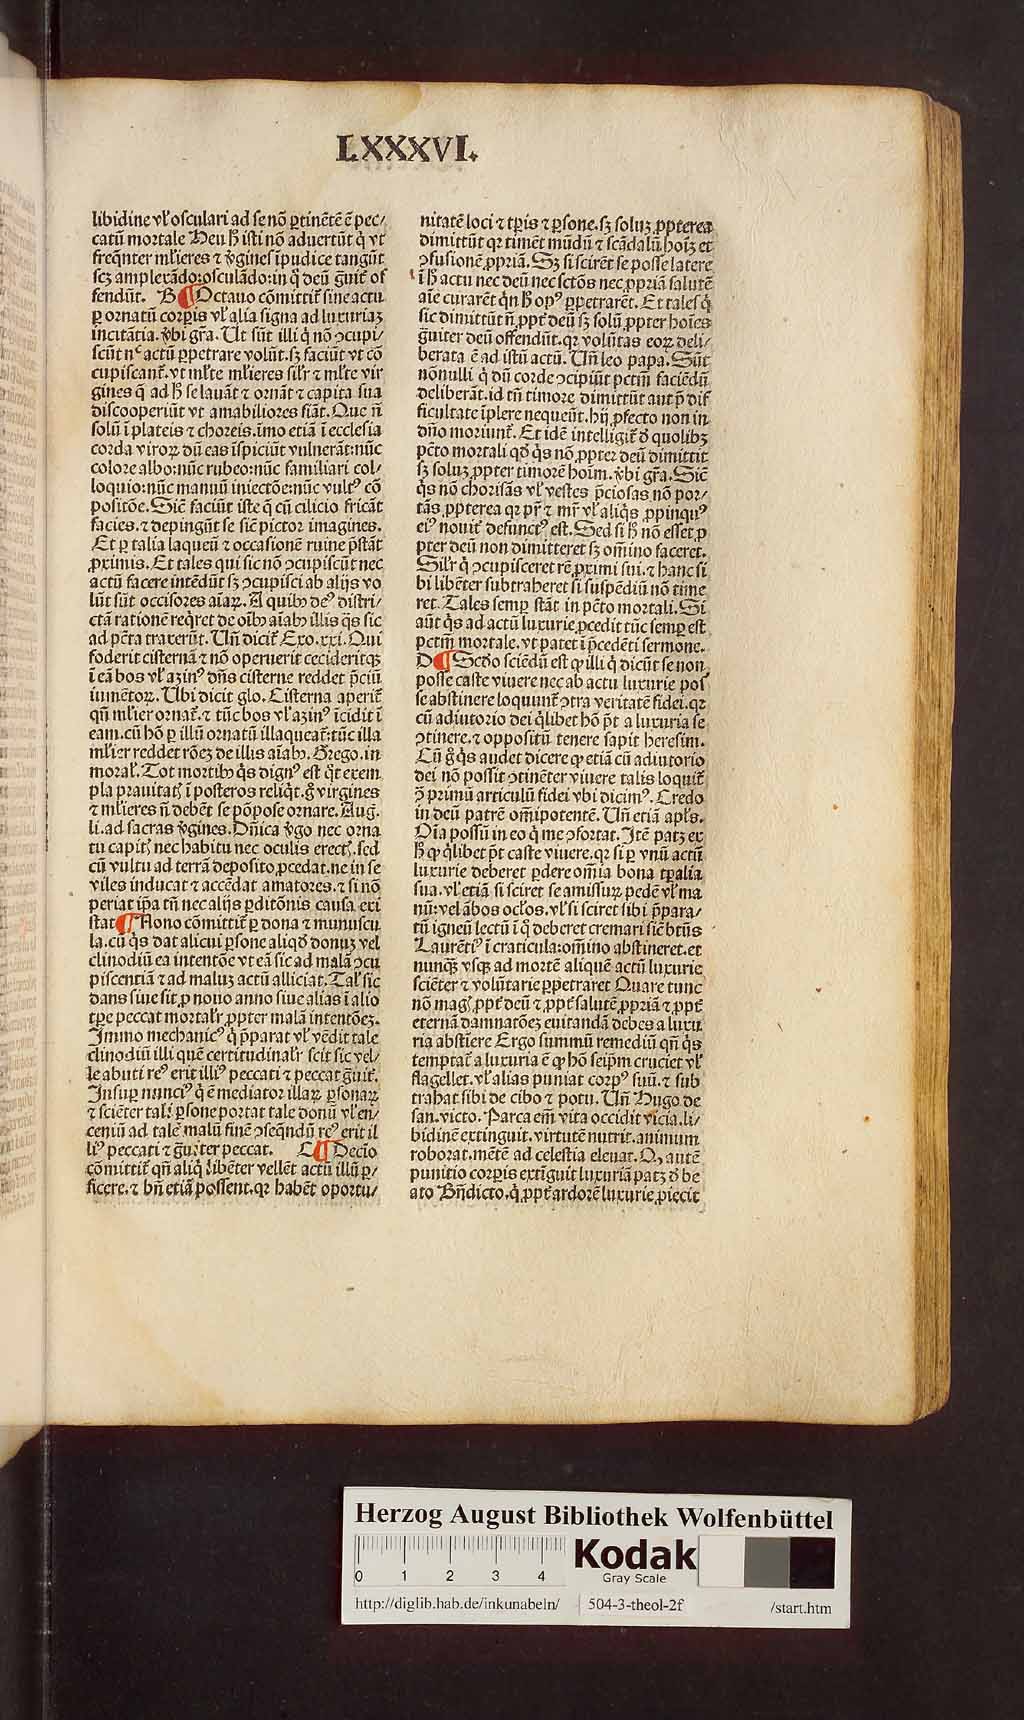 LXXXVI.
libidine vł osculari ad se nō ꝑtinētē ē pec/
catū mortale Heu ħ isti nō aduertūt ꝙ vt
freq̄nter ml̄ieres ⁊ v̄gines īpudice tangūt
scꝫ amplexādo:osculādo:in q̊ deū ḡuit̄ of
fendūt. B ¶ Octauo cōmittit̄ sine actu
ꝑ ornatū corꝑis vł alia signa ad luxuriaꝫ
incitātia. v̄bi gr̄a. Ut sūt illi q̇ nō ꝯcupi/
scūt nᶜ actū ꝑpetrare volūt. sꝫ faciūt vt cō
cupiscant̄. vt ml̄te ml̄ieres sil̄r ⁊ ml̄te vir
gines q̄ ad ħ se lauāt ⁊ ornāt ⁊ capita sua
discooperiūt vt amabiliores fiāt. Que n̄
solū ī plateis ⁊ choreis. īmo etiā ī ecclesia
corda viroꝝ dū eas īspiciūt vulnerāt:nūc
colore albo:nūc rubeo:nūc familiari col/
loquio:nūc manuū iniectōe:nūc vultꝰ cō
positōe. Sic̄ faciūt iste q̄ cū cilicio fricāt
facies. ⁊ depingūt se sic̄ pictor imagines.
Et ꝑ talia laqueū ⁊ occasionē ruine p̄stāt
ꝓximis. Et tales qui sic nō ꝯcupiscūt nec
actū facere intēdūt sꝫ ꝯcupisci ab alijs vo
lūt sūt occisores aīaꝝ. A quibꝰ deꝰ distri/
ctā rationē reqͥret de oībꝰ aīabꝰ illis q̄s sic
ad pctā traxerūt. Un̄ dicit̄ Exo.xxi. Qui
foderit cisternā ⁊ nō operuerit cecideritqꝫ
ī eā bos vł azinꝰ dn̄s cisterne reddet p̄ciū
iumētoꝝ. Ubi dicit glo. Cisterna aperit̄
qn̄ ml̄ier ornat̄. ⁊ tūc bos vł azinꝰ īcidit ī
eam. cū hō ꝑ illū ornatū illaqueat̄: tūc illa
ml̄ier reddet rōeꝫ de illis aīabꝰ. Grego. in
moral̄. Tot mortibꝰ q̇s dignꝰ est qͦt exem
pla prauitatꝭ ī posteros reliqͥt. gͦ virgines
⁊ ml̄ieres n̄ debēt se pōpose ornare. Aug.
li. ad sacras v̄gines. Dn̄ica v̄go nec orna
tu capitꝭ nec habitu nec oculis erectꝭ. sed
cū vultu ad terrā deposito ꝓcedat. ne in se
viles inducat ⁊ accēdat amatores. ⁊ si nō
periat ip̄a tn̄ nec alijs ꝑditōnis causa exi
stat ¶ Nono cōmittit̄ ꝑ dona ⁊ munuscu
la. cū q̇s dat alicui ꝑsone aliqͦd donuꝫ vel
clinodiū ea intentōe vt eā sic ad malā ꝯcu
piscentiā ⁊ ad maluꝫ actū alliciat. Tal̄ sic
dans siue sit ꝓ nouo anno siue alias ī alio
tp̄e peccat mortal̄r ꝓpter malā intentōeꝫ.
Immo mechanicꝰ q̇ p̄parat vł vēdit tale
clinodiū illi quē certitudinal̄r scit sic vel/
le abuti reꝰ erit illiꝰ peccati ⁊ peccat ḡuit̄.
Insuꝑ nunciꝰ q̇ ē mediator illaꝝ ꝑsonaꝝ
⁊ sciēter tali ꝑsone portat tale donū vł en/
ceniū ad tale malū finē ꝯseq̄ndū reꝰ erit il
liꝰ peccati ⁊ ḡuiter peccat. C ¶ Decīo
cōmittit̄ qn̄ aliq̇ libēter vellēt actū illū ꝑ/
ficere. ⁊ bn̄ etiā possent. qꝛ habēt oportu/
nitatē loci ⁊ tꝑis ⁊ ꝑsone. sꝫ soluꝫ ꝓpterea
dimittūt qꝛ timēt mūdū ⁊ scādalū hoīꝫ et
ꝯfusionē ꝓpriā. Sꝫ si scirēt se posse latere
ī ħ actu nec deū nec sctōs nec ꝓpriā salutē
aīe curarēt qͥn ħ opꝰ ꝑpetrarēt. Et tales q̇
sic dimittūt n̄ ꝓpt̄ deū sꝫ solū ꝓpter hoīes
ḡuiter deū offendūt. qꝛ volūtas eoꝝ deli/
berata ē ad istū actū. Un̄ leo papa. Sūt
nōnulli q̇ dū corde ꝯcipiūt pctm̄ faciēdū
deliberāt. id tn̄ timore dimittūt aut p̄ dif
ficultate īplere nequeūt. hij ꝓfecto non in
dn̄o moriunt̄. Et idē intelligit̄ d̄ quolibꝫ
pctō mortali qd̄ q̇s nō ꝓpter deū dimittit
sꝫ soluꝫ ꝓpter timorē hoīm. v̄bi gr̄a. Sic̄
q̇s nō chorisās vł vestes p̄ciosas nō por/
tās ꝓpterea qꝛ pr̄ ⁊ mr̄ vł aliq̇s ꝓpinquꝰ
eiꝰ nouit̄ defunctꝰ est. Sed si ħ nō esset ꝓ
pter deū non dimitteret sꝫ om̄ino faceret.
Sil̄r q̇ ꝯcupisceret rē ꝓximi sui. ⁊ hanc si
bi libēter subtraheret si suspēdiū nō time
ret. Tales semꝑ stāt in pctō mortali. Si
aūt q̇s ad actū luxurie ꝓcedit tūc semꝑ est
pctm̄ mortale. vt patet ī p̄cedēti sermone.
D ¶ Scdo sciēdū est ꝙ illi q̇ dicūt se non
posse caste viuere nec ab actu luxurie pos
se abstinere loquunt̄ ꝯtra veritatē fidei. qꝛ
cū adiutorio dei q̇libet hō pt̄ a luxuria se
ꝯtinere. ⁊ oppositū tenere sapit heresim.
Cū gͦ q̇s audet dicere ꝙ etiā cū adiutorio
dei nō possit ꝯtinēter viuere talis loquit̄
ꝯ̄ primū articulū fidei vbi dicimꝰ. Credo
in deū patrē om̄ipotentē. Un̄ etiā apl̄s.
Oīa possū in eo q̇ me ꝯfortat. Itē patꝫ ex
ħ ꝙ q̇libet pt̄ caste viuere. qꝛ si ꝑ vnū actū
luxurie deberet ꝑdere om̄ia bona tp̄alia
sua. vł etiā si sciret se amissuꝝ pedē vł ma
nū: vel ābos oclōs. vł si sciret sibi p̄para/
tū igneū lectū ī q̊ deberet cremari sic̄ btūs
Laurētiꝰ ī craticula: om̄ino abstineret. et
nunqꝫ vsqꝫ ad mortē aliquē actū luxurie
sciēter ⁊ volūtarie ꝑpetraret Quare tunc
nō magꝭ ꝓpt̄ deū ⁊ ꝓpt̄ salutē ꝓpriā ⁊ ꝓpt̄
eternā damnatōeꝫ euitandā debes a luxu
ria abstīere Ergo summū remediū qn̄ q̇s
temptat̄ a luxuria ē ꝙ hō seip̄m cruciet vł
flagellet. vł alias puniat corpꝰ suū. ⁊ sub
trahat sibi de cibo ⁊ potu. Un̄ Hugo de
san. victo. Parca em̄ vita occidit vicia. li/
bidinē extinguit. virtutē nutrit. animum
roborat. mētē ad celestia eleuat. Q, autē
punitio corꝑis extīguit luxuriā patꝫ d̄ be
ato Bn̄dicto. q̇ ꝓpt̄ ardorē luxurie ꝓiecit
Herzog August Bibliothek Wolfenbüttel
0 1 2 3 4
Kodak
Gray Scale
http://diglib.hab.de/inkunabeln/ 504-3-theol-2f /start.htm